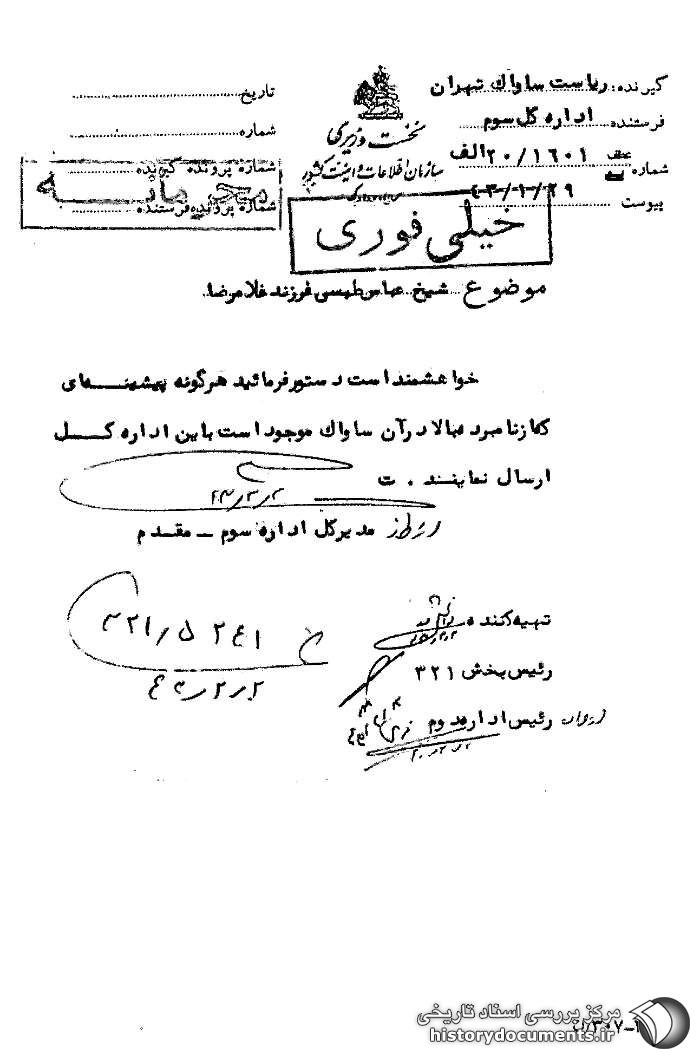 گیرنده: ریاست ساواک تهران
فرستنده اداره کل سوم
شماره عطف به ۲۰/۱۶۰۱ الف
۴۳/۱/۲۹
پیوست
نخست وزیری
سازمان اطلاعات و امنیت کشور
تاریخ
شماره
شماره پرونده گیرنده
شماره پرونده فرستنده
محرمانه
خیلی فوری
موضوع شیخ عباس طبسی فرزند غلامرضا.
خواهشمند است دستور فرمائید هرگونه پیشینه‌ای
که از نامبرده بالا در آن ساواک موجود است باین اداره کل
ارسال نمایند . ت
۴۳/۲/۲
مدیرکل اداره سوم – مقدم
تهیه کننده
رئیس بخش ۳۲۱
رئیس اداره دوم
۳۲۱/۵ ۲۴۱
۴۳/۲/۲
مرکز بررسی اسناد تاریخی
historydocuments.ir